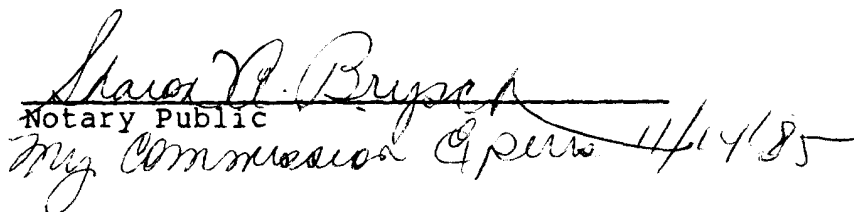 Sharon A. Brysch
Notary Public
My Commission Expires 11/14/85